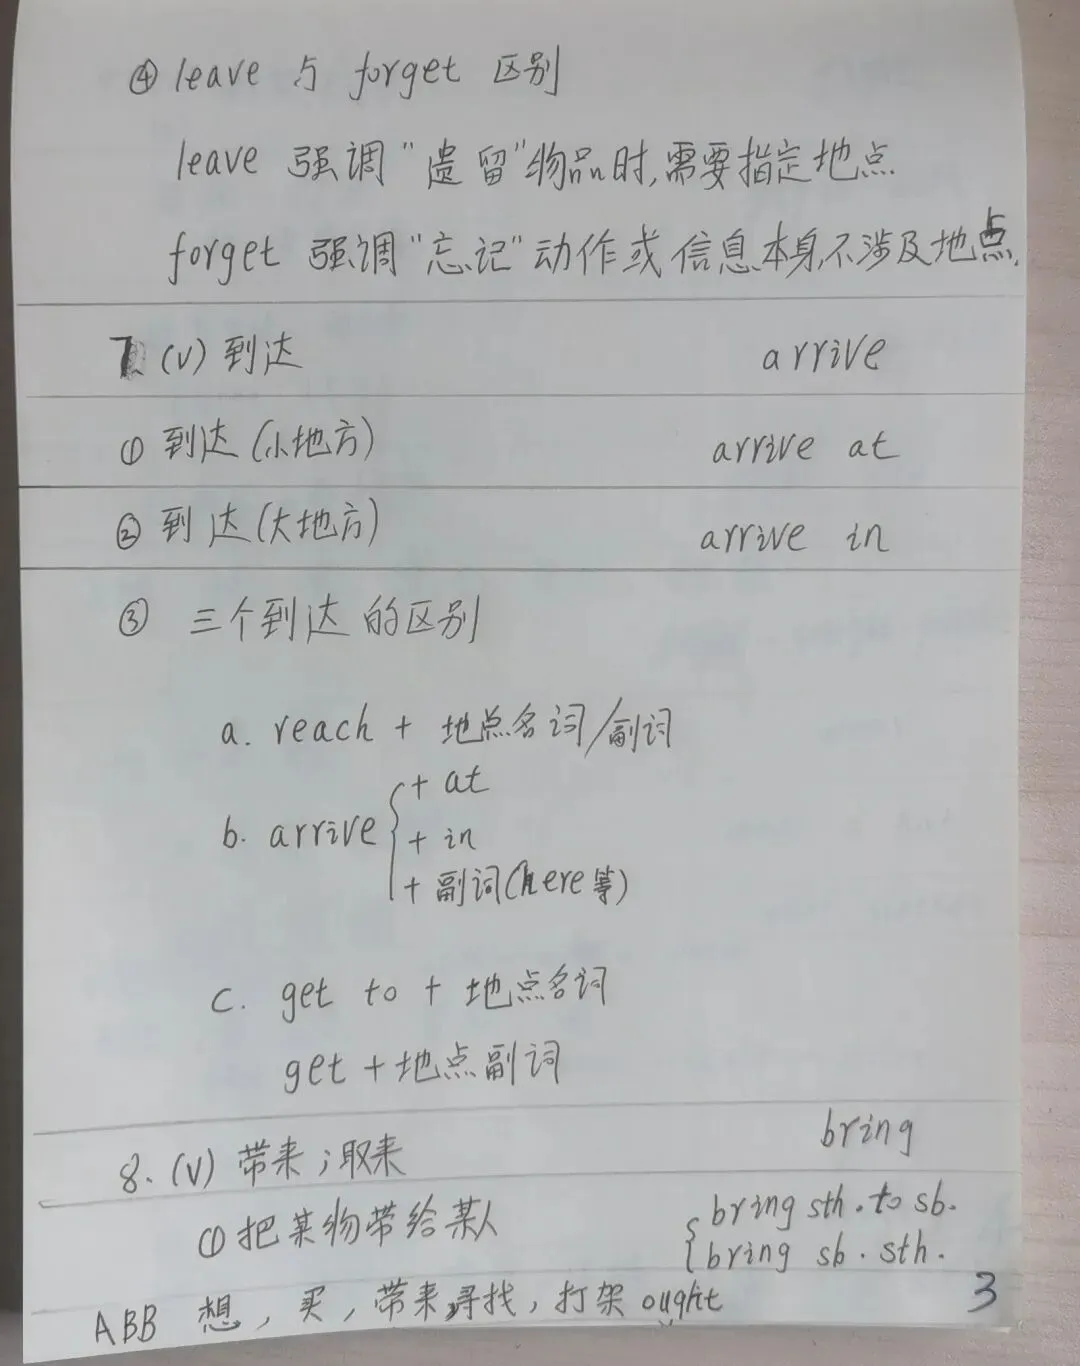 ④ leave 与 forget 区别
leave 强调“遗留”物品时,需要指定地点
forget 强调“忘记”动作或信息本身,不涉及地点.
7. (v) 到达 arrive
① 到达(小地方) arrive at
② 到达(大地方) arrive in
③ 三个到达的区别
a. reach + 地点名词/副词
b. arrive { + at
+ in
+ 副词(here等)
c. get to + 地点名词
get + 地点副词
8. (v) 带来;取来 bring
① 把某物带给某人 { bring sth. to sb.
bring sb. sth.
ABB 想, 买, 带来,寻找, 打架 ought
3